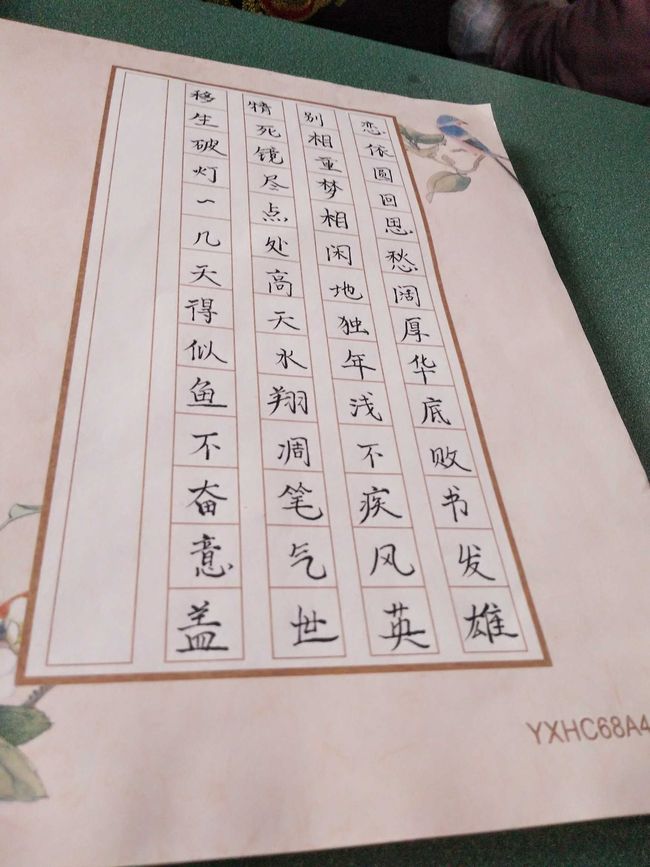 移情别恋
生死相依
破镜重圆
灯尽梦回
一点相思
几处闲愁
天高地阔
得天独厚
似水年华
鱼翔浅底
不凋不败
奋笔疾书
意气风发
盖世英雄
YXHC68A4